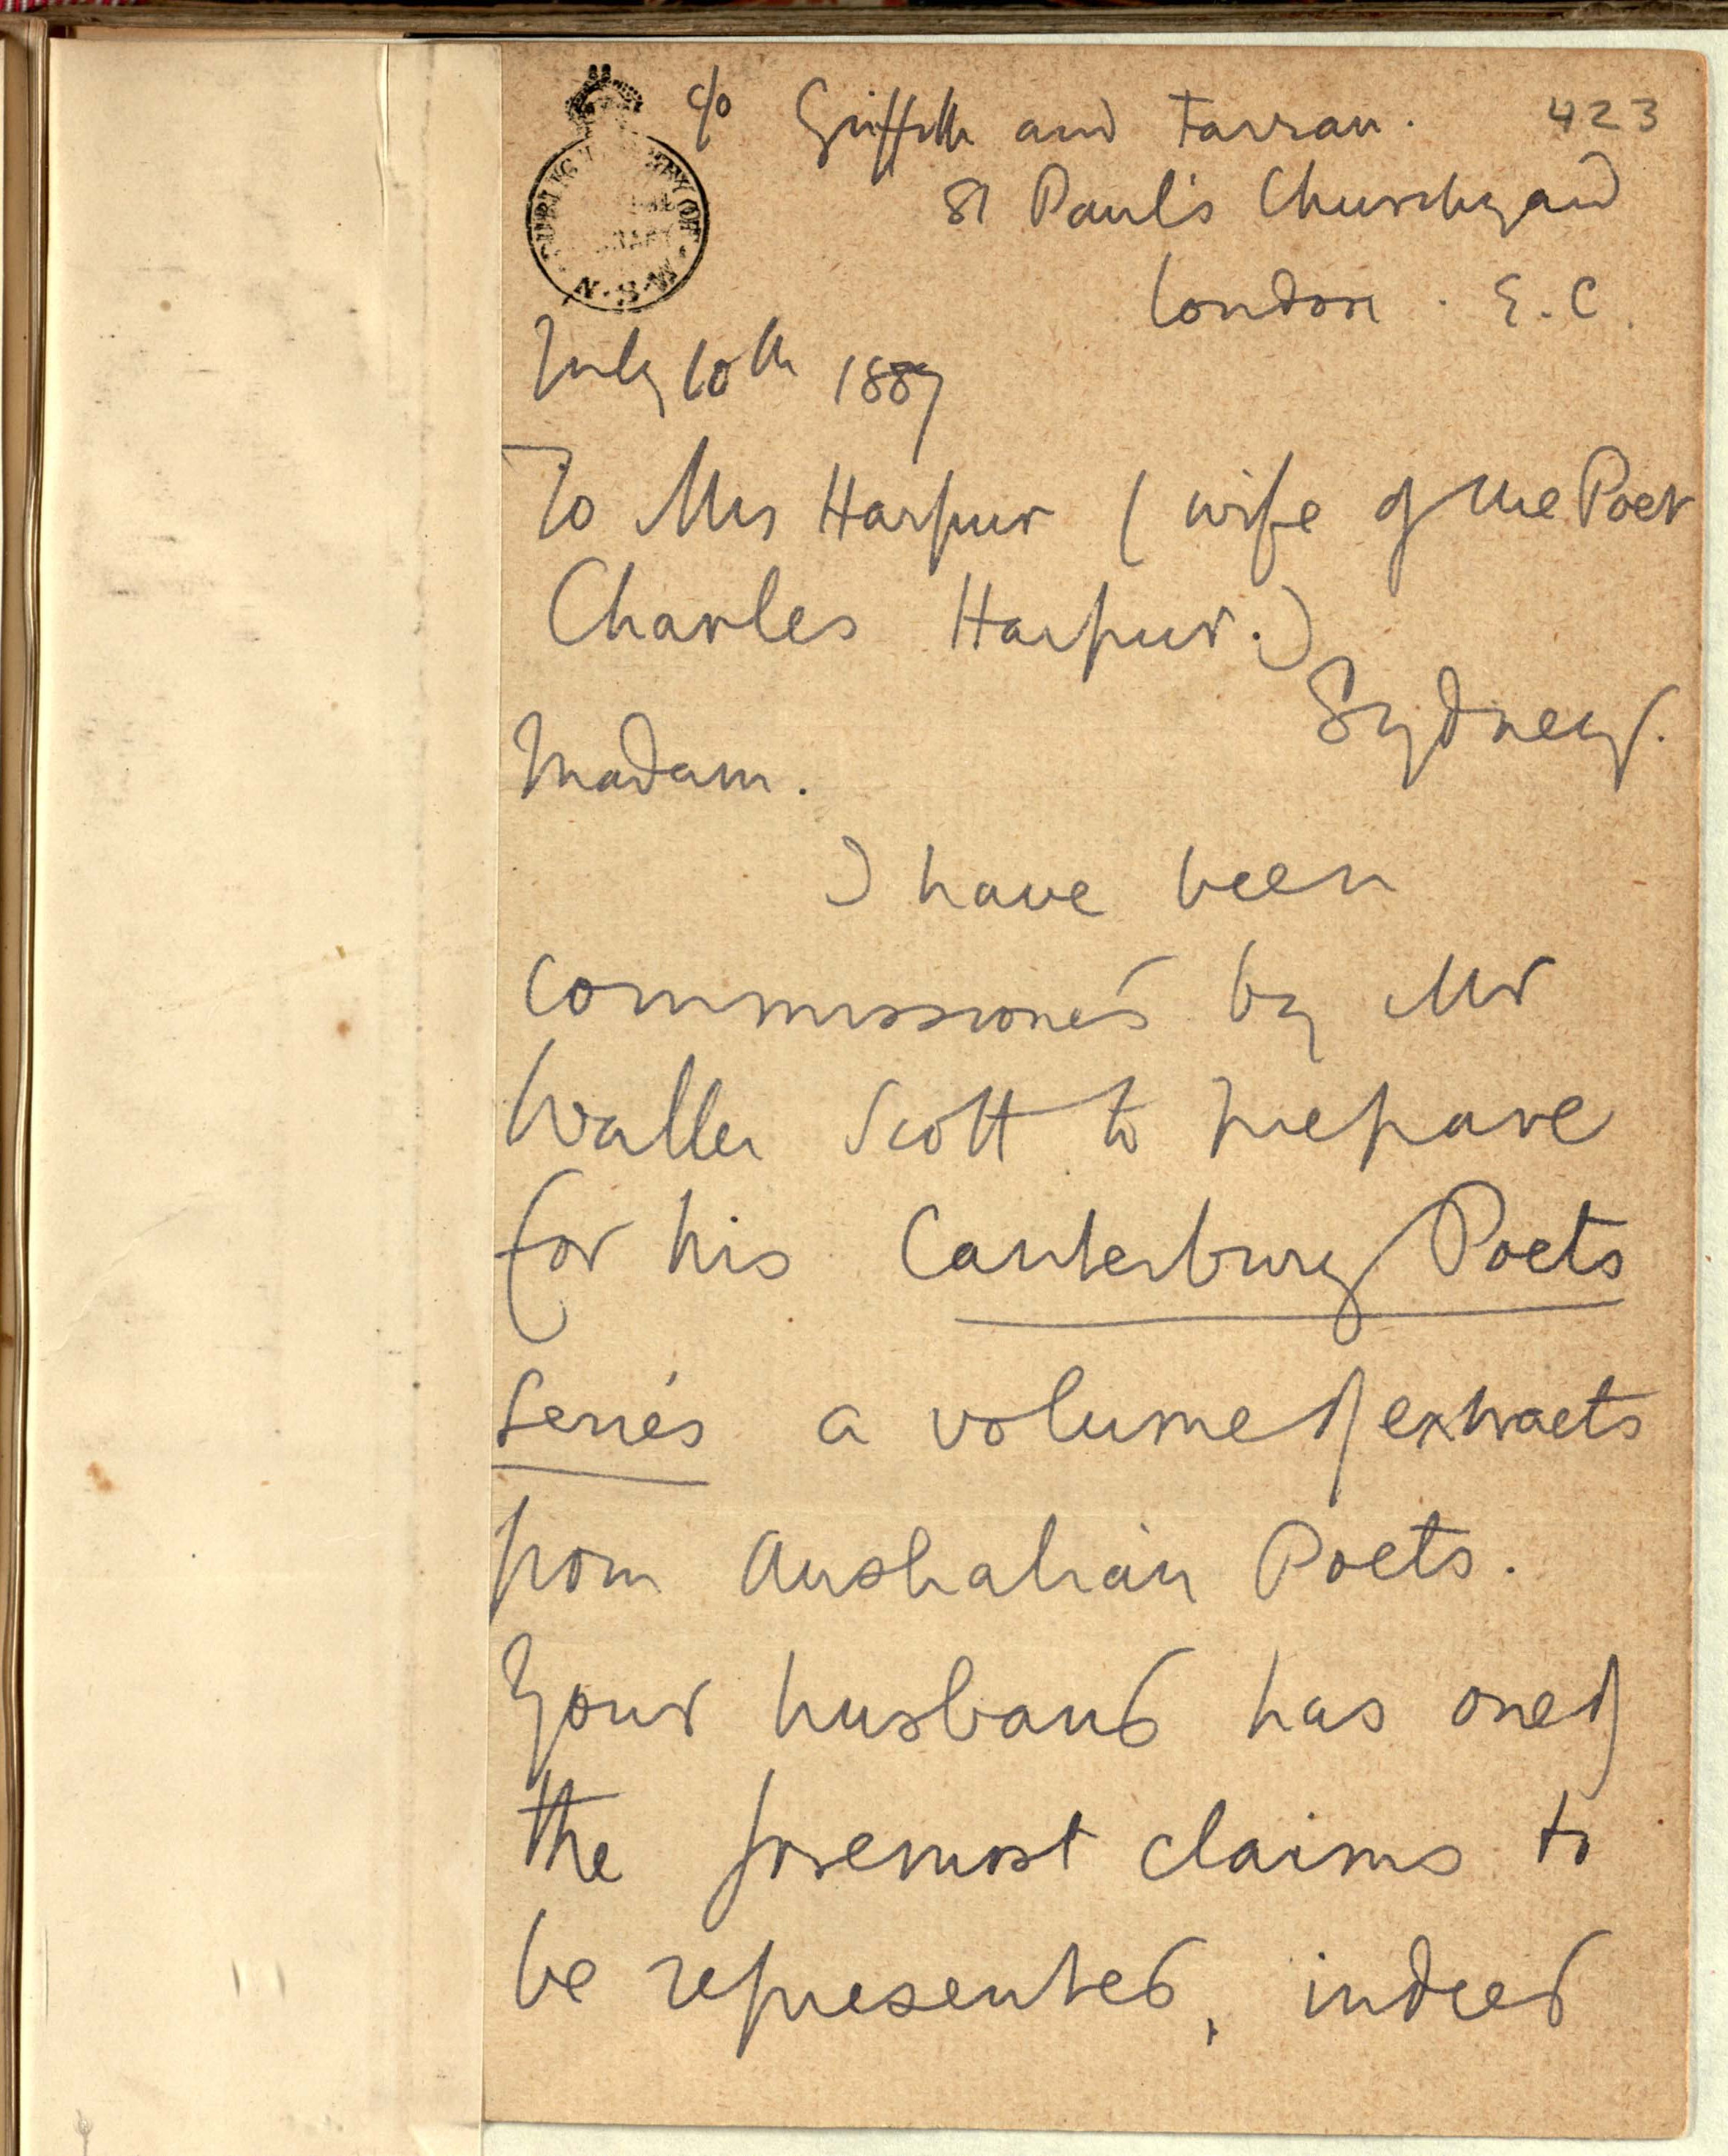 c/o Griffith and Farran. 423
St Paul's Churchyard
London. E.C.
July 10th 1887
To Mrs Harpur (wife of the Poet
Charles Harpur.)
Sydney.
Madam.
I have been
commissioned by Mr
Walter Scott to prepare
for his Canterbury Poets
Series a volume of extracts
from Australian Poets.
Your husband has one of
the foremost claims to
be represented, indeed